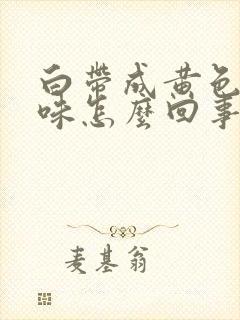 白带成黄色
味怎麼回事
麦基翁